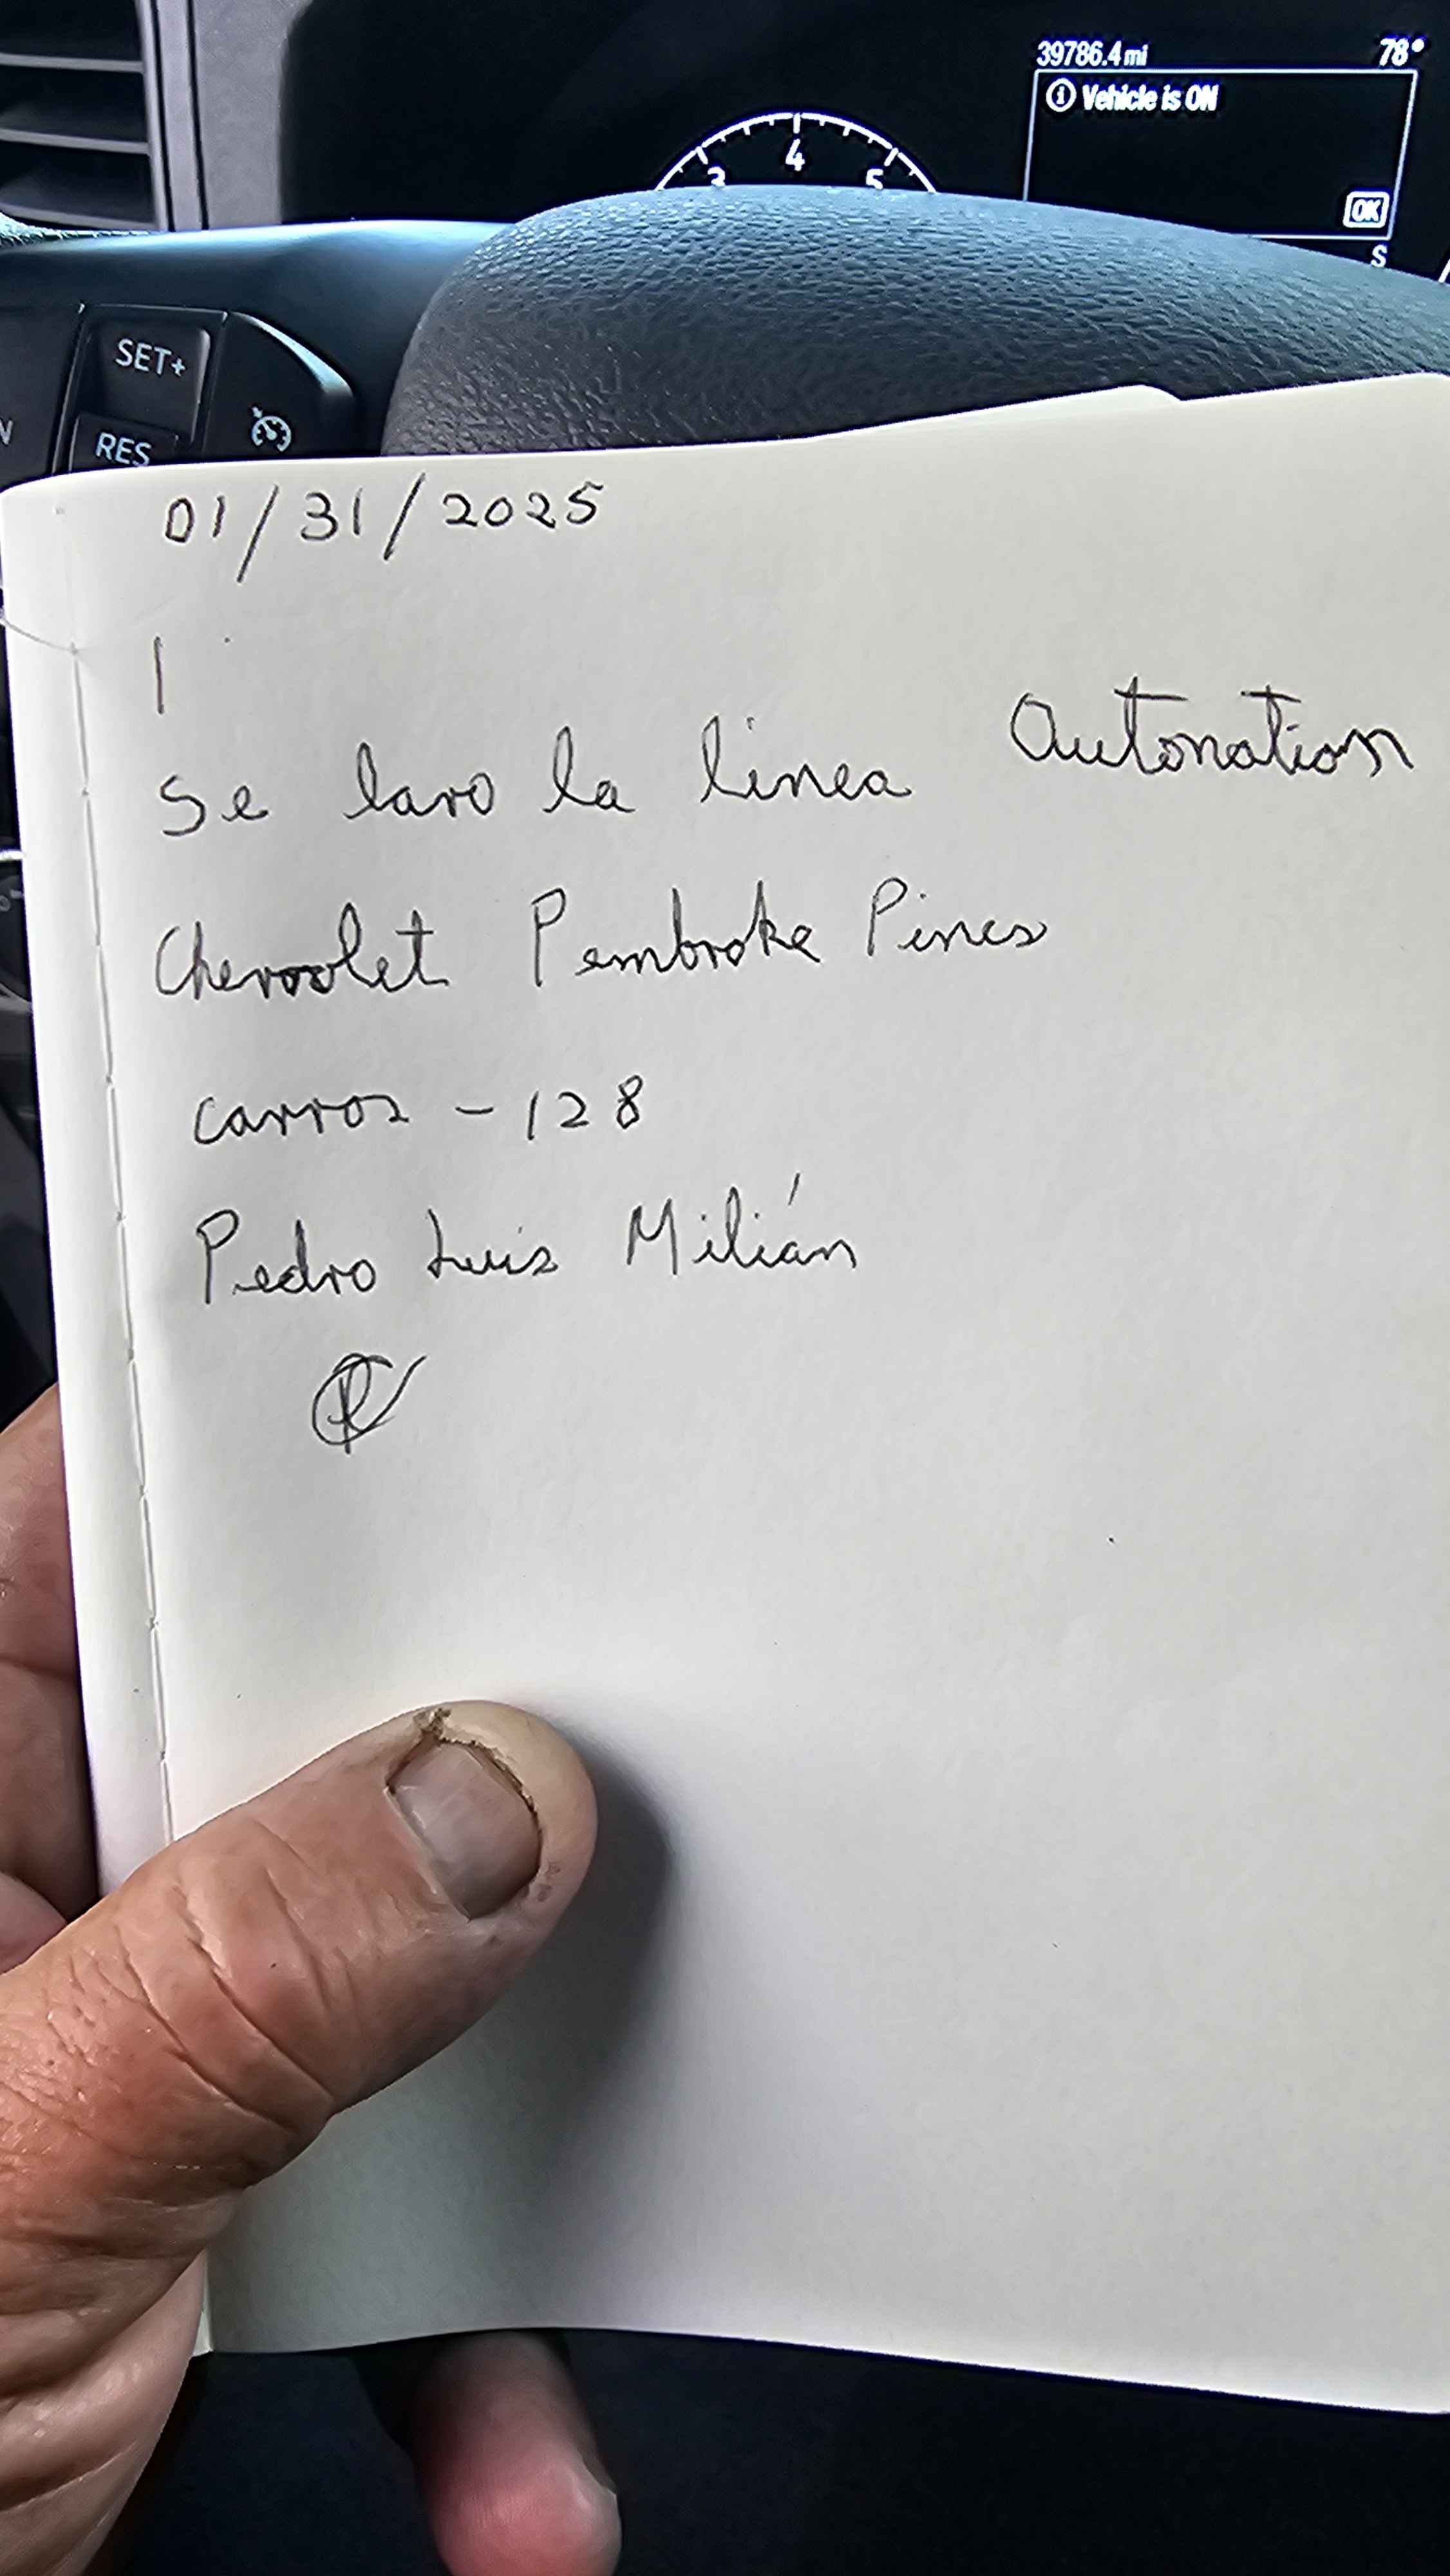 39786.4 mi 78°
Vehicle is ON
3 4 5
OK
S
SET+
RES
01/31/2025
1
Se lavo la linea Autonation
Chevrolet Pembroke Pines
carros - 128
Pedro Luis Milián